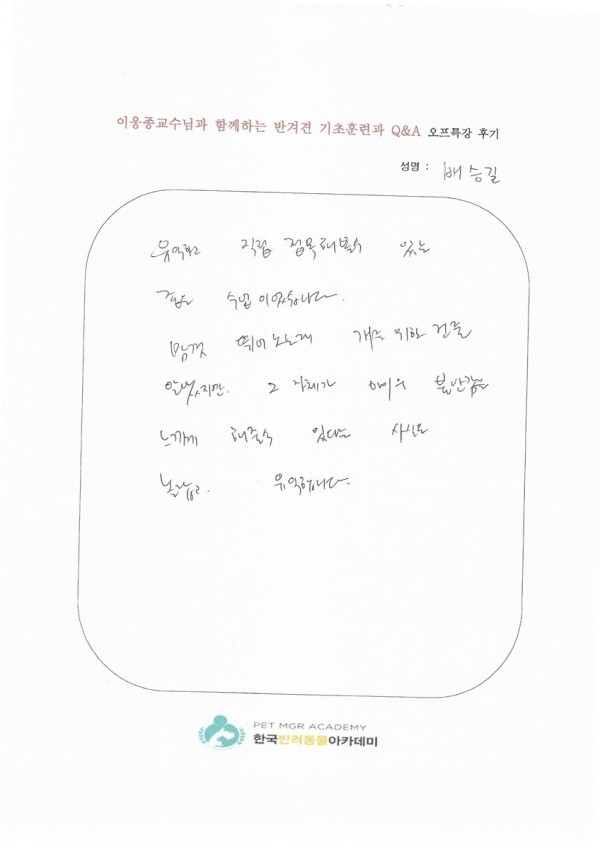 이웅종교수님과 함께하는 반겨견 기초훈련과 Q&A 오프특강 후기
성명 : 배승길
유익하고 직접 접목해볼수 있는
수업이었습니다.
맘껏 뛰어노는게 개를 위한 건줄
알았지만. 그 자체가 아이의 불안감을
느끼게 해줄수 있다는 사실도
놀랍고. 유익합니다.
PET MGR ACADEMY
한국반려동물아카데미